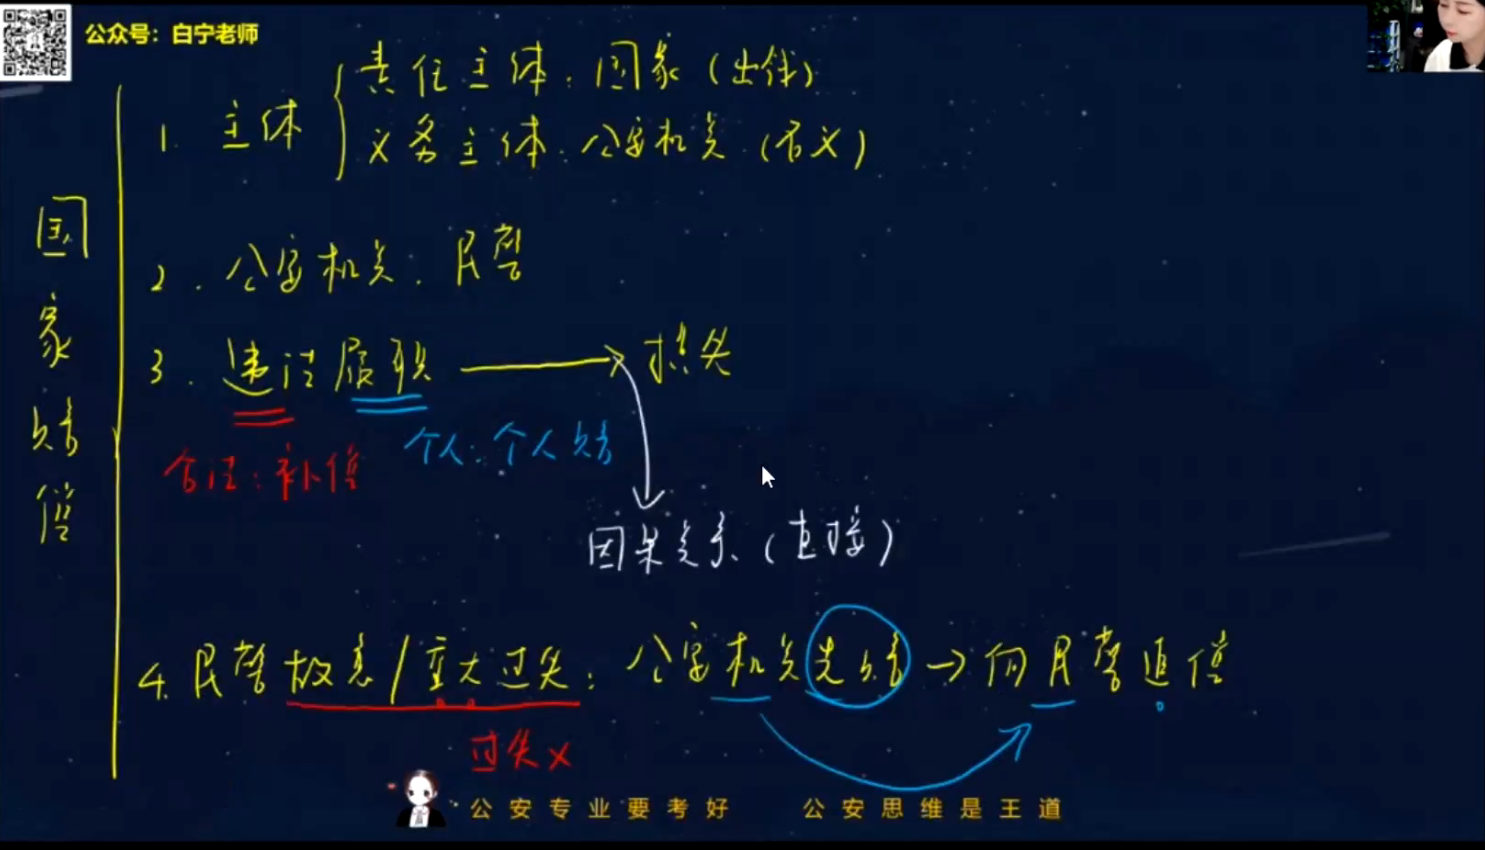 公众号：白宁老师
国家赔偿
1. 主体
责任主体：国家（出钱）
义务主体：公安机关（名义）
2. 公安机关：民警
3. 违法履职 → 损失
合法：补偿
个人：个人赔
因果关系（直接）
4. 民警故意/重大过失：公安机关先赔→向民警追偿
过失x
公安专业要考好 公安思维是王道